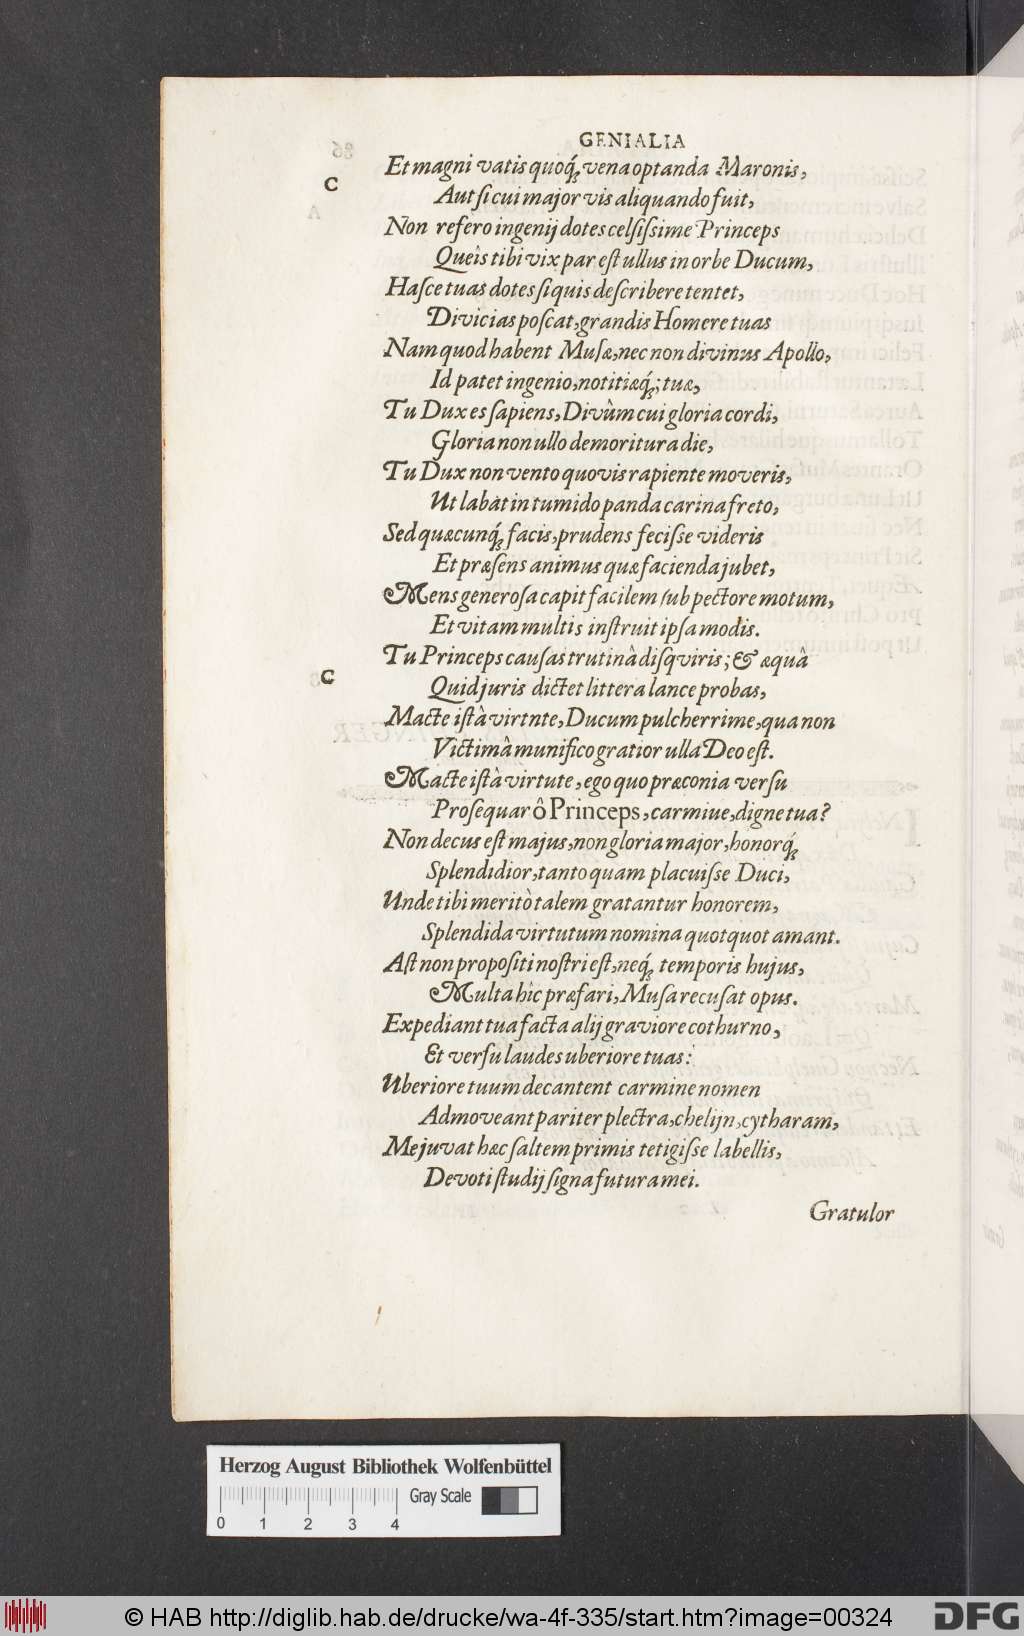 GENIALIA
Et magni vatis quoq́; vena optanda Maronis,
C
Aut si cui major vis aliquando fuit,
Non refero ingenij dotes celsissime Princeps
Queîs tibi vix par est ullus in orbe Ducum,
Hasce tuas dotes siquis describere tentet,
Divicias poscat, grandis Homere tuas
Nam quod habent Musæ, nec non divinus Apollo,
Id patet ingenio, notitiæq́;; tuæ,
Tu Dux es sapiens, Divùm cui gloria cordi,
Gloria non ullo demoritura die,
Tu Dux non vento quovis rapiente moveris,
Ut labat in tumido panda carina freto,
Sed quæcunq́; facis, prudens fecisse videris
Et præsens animus quæ facienda jubet,
Mens generosa capit facilem sub pectore motum,
Et vitam multis instruit ipsa modis.
Tu Princeps causas trutinâ disqviris; & æquâ
C
Quid juris dictet littera lance probas,
Macte istà virtnte, Ducum pulcherrime, qua non
Victimâ munifico gratior ulla Deo est.
Macte istà virtute, ego quo præconia versu
Prosequar ô Princeps, carmiue, digne tua?
Non decus est majus, non gloria major, honorq́;
Splendidior, tanto quam placuisse Duci,
Unde tibi meritò talem gratantur honorem,
Splendida virtutum nomina quotquot amant.
Ast non propositi nostri est, neq́; temporis hujus,
Multa hîc præfari, Musa recusat opus.
Expediant tua facta alij graviore cothurno,
Et versu laudes uberiore tuas:
Uberiore tuum decantent carmine nomen
Admoveant pariter plectra, chelijn, cytharam,
Me juvat hæc saltem primis tetigisse labellis,
Devoti studij signa futura mei.
Gratulor
Herzog August Bibliothek Wolfenbüttel
Gray Scale
0 1 2 3 4
© HAB http://diglib.hab.de/drucke/wa-4f-335/start.htm?image=00324
DFG